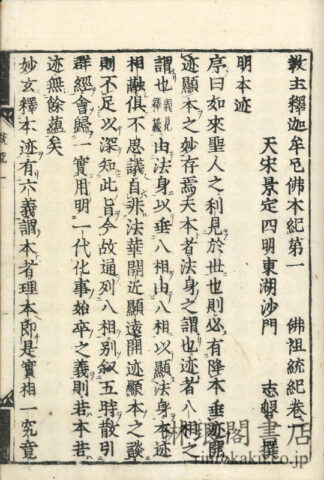 教主釋迦牟尼佛本紀第一　佛祖統紀卷一
天宋景定四明東湖沙門　志磐　撰
明本迹
序曰如來聖人之利見於世也則必有降本垂迹開
迹顯本之妙存焉夫本者法身之謂也迹者八相之
謂也由法身以垂八相由八相以顯法身本迹
相融俱不思議自非法華開近顯遠開迹顯本之談
則不足以深知此旨今故通列八相別叙五時散引
群經會歸一實用明一代化事始卒之義則若本若
迹無餘蘊矣
妙玄釋本迹有六義謂本者理本即是實相一究竟
琳琅閣書店
rinrokaku.co.jp